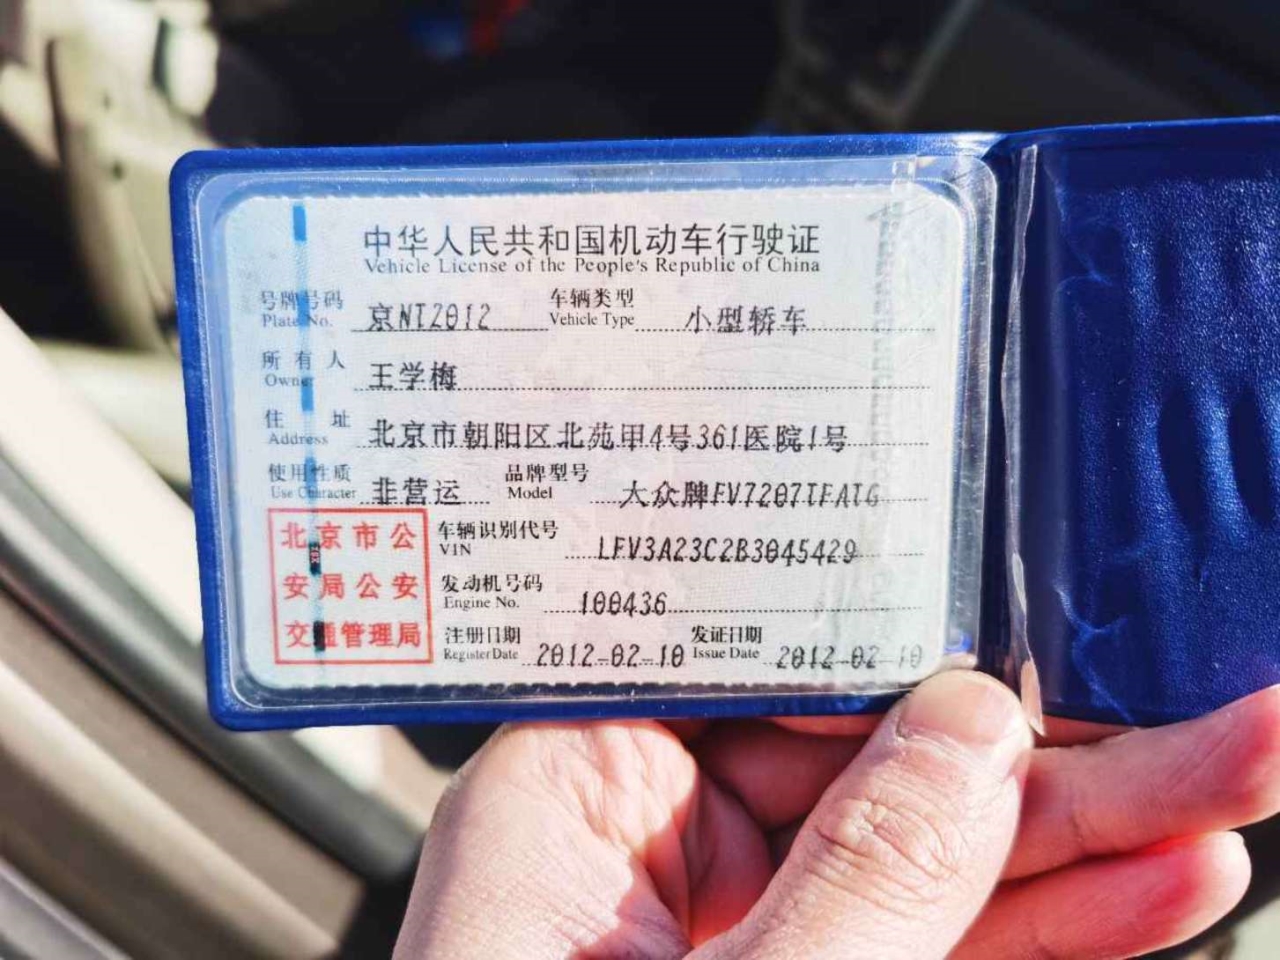 中华人民共和国机动车行驶证
Vehicle License of the People's Republic of China
号牌号码 京NT2012 车辆类型 小型轿车
Plate No. Vehicle Type
所有人 王学梅
Owner
住址 北京市朝阳区北苑甲4号361医院1号
Address
使用性质 非营运 品牌型号 大众牌FV7207TFATG
Use Character Model
北京市公
安局公安
交通管理局
车辆识别代号 LFV3A23C2B3045429
VIN
发动机号码 100436
Engine No.
注册日期 2012-02-10 发证日期 2012-02-10
Register Date Issue Date